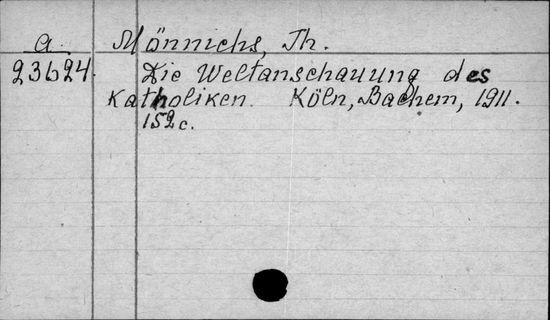 a Mönnichs, Th.
23624. Die Weltanschauung des
Katholiken. Köln, Bachem, 1911.
152 c.